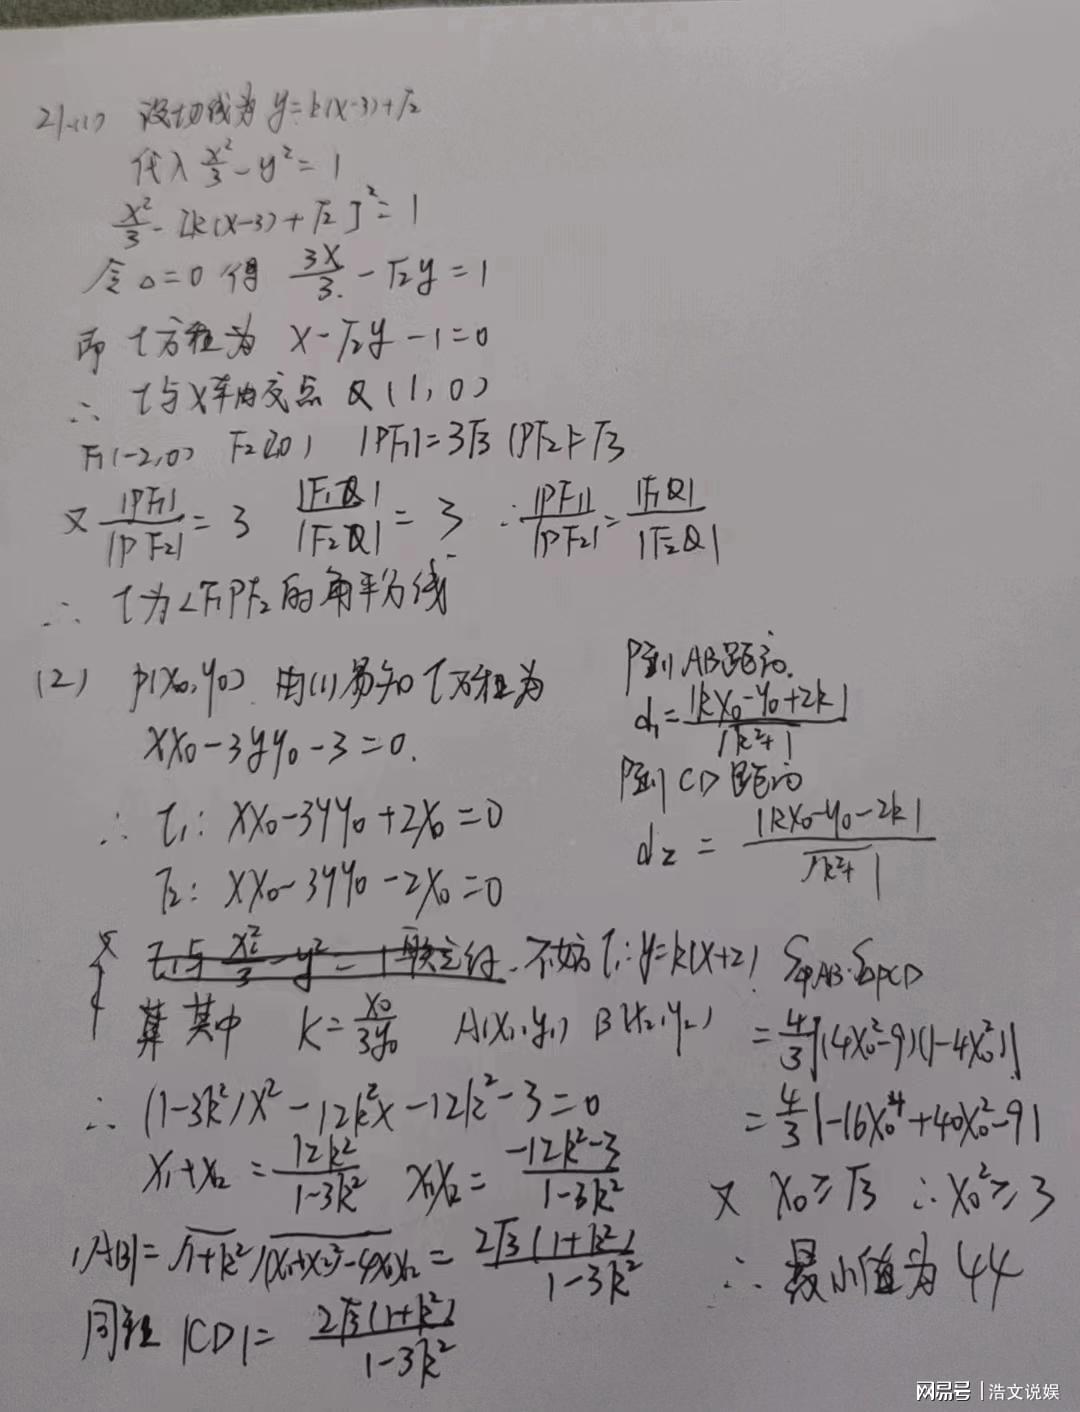 21.(1) 设切线为 y=k(x-3)+√2
代入 x²/3 - y² = 1
x²/3 - [k(x-3)+√2]² = 1
令△=0 得 3x/3. - √2y = 1
即 l方程为 x-√2y-1=0
∴ l与x轴的交点 Q(1,0)
F₁(-2,0) F₂(2,0) |PF₁|=3√3 |PF₂|=√3
又 |PF₁|/|PF₂| = 3 |F₁Q|/|F₂Q| = 3 ∴ |PF₁|/|PF₂| = |F₁Q|/|F₂Q|
∴ l为∠F₁PF₂的角平分线
(2) P(x₀,y₀) 由(1)易知 l方程为
xx₀-3yy₀-3=0.
∴ l₁: xx₀-3yy₀+2x₀=0
l₂: xx₀-3yy₀-2x₀=0
l₁与 x²/3 - y² = 1 联立得. 不妨 l₁: y=k(x+2)
其中 k= x₀/3y₀ A(x₁,y₁) B(x₂,y₂)
∴ (1-3k²)x²-12k²x-12k²-3=0
x₁+x₂ = 12k²/1-3k² x₁x₂ = -12k²-3/1-3k²
|AB|= √1+k² √(x₁+x₂)²-4x₁x₂ = 2√3(1+k²)/1-3k²
同理 |CD|= 2√3(1+k²)/1-3k²
P到AB距离.
d₁= |kx₀-y₀+2k|/√k²+1
P到CD距离
d₂ = |kx₀-y₀-2k|/√k²+1
S△PAB·S△PCD
= 4/3 |(4x₀²-9)(1-4x₀²)|
= 4/3 |-16x₀⁴+40x₀²-9|
又 x₀≥√3 ∴ x₀²≥3
∴ 最小值为 44
网易号 | 浩文说娱